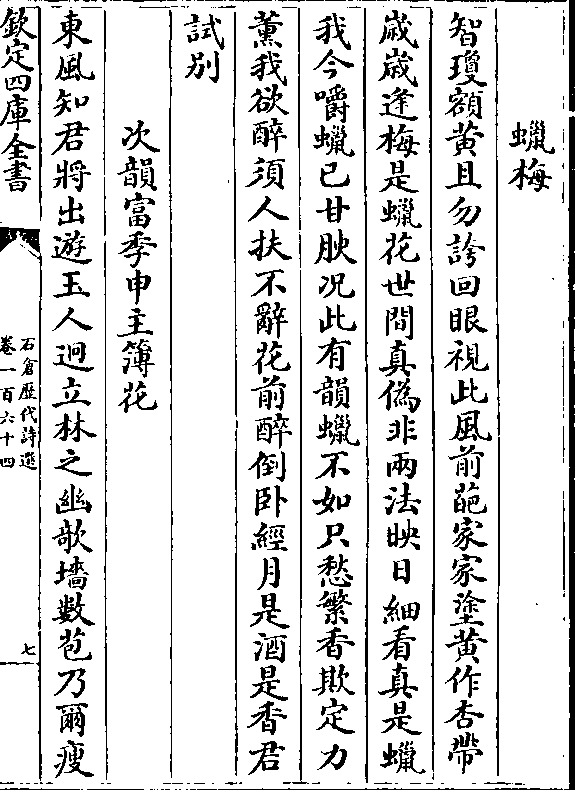 蠟梅
智瓊額黄且勿誇回眼視此風前葩家家塗黄作杏帶
嵗嵗逢梅是蠟花世間真偽非兩法映日細看真是蠟
我今嚼蠟已甘腴况此有韻蠟不如只愁繁香欺定力
薰我欲醉須人扶不辭花前醉倒卧經月是酒是香君
試别
次韻富季申主簿花
東風知君將出遊玉人迥立林之幽欹墻數苞乃爾瘦
欽定四庫全書
石倉歴代詩選
卷一百六十四
七